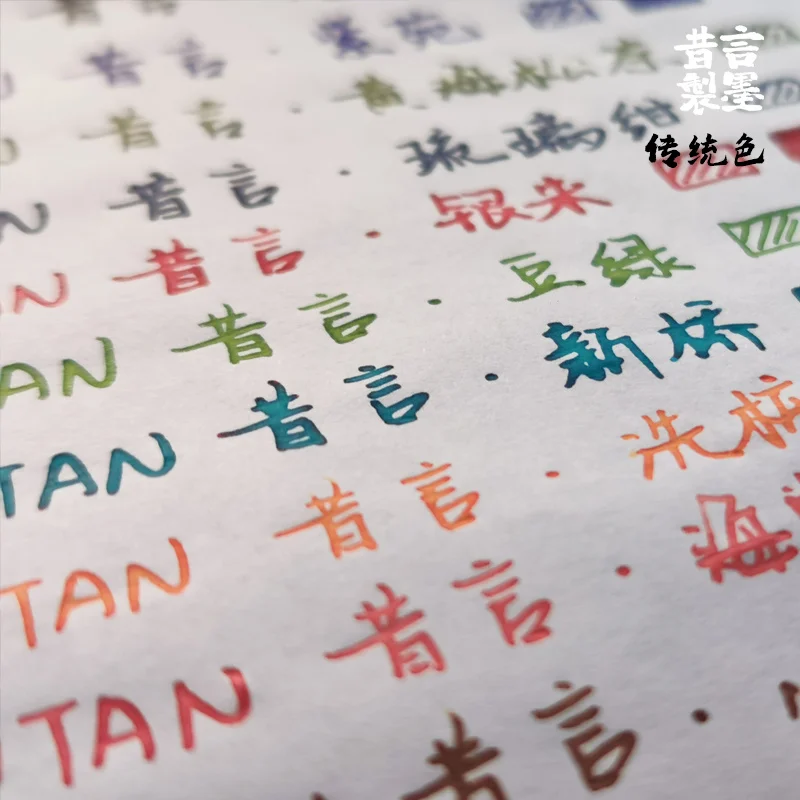 昔言
製墨
传统色
昔言·紫苑
昔言·黄海松
N 昔言·琉璃绀
AN 昔言·银朱
AN 昔言·豆绿
TAN 昔言·新桥
TAN 昔言·洗柿
TAN 昔言·海
昔言·